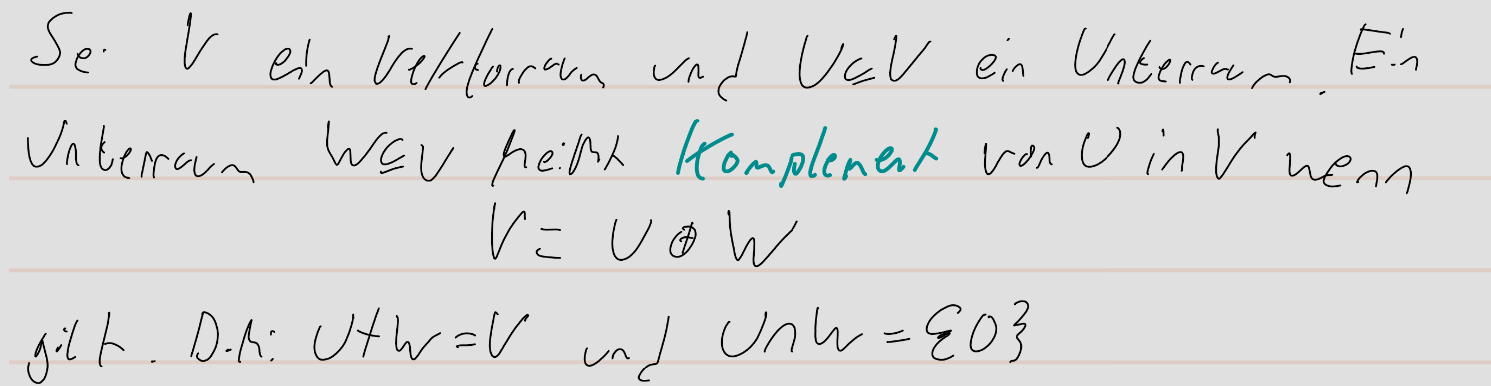 Sei V ein Vektorraum und U⊆V ein Unterraum. Ein
Unterraum W⊆V heißt Komplement von U in V wenn
V = U ⊕ W
gilt. D.h: U+W=V und U∩W={0}